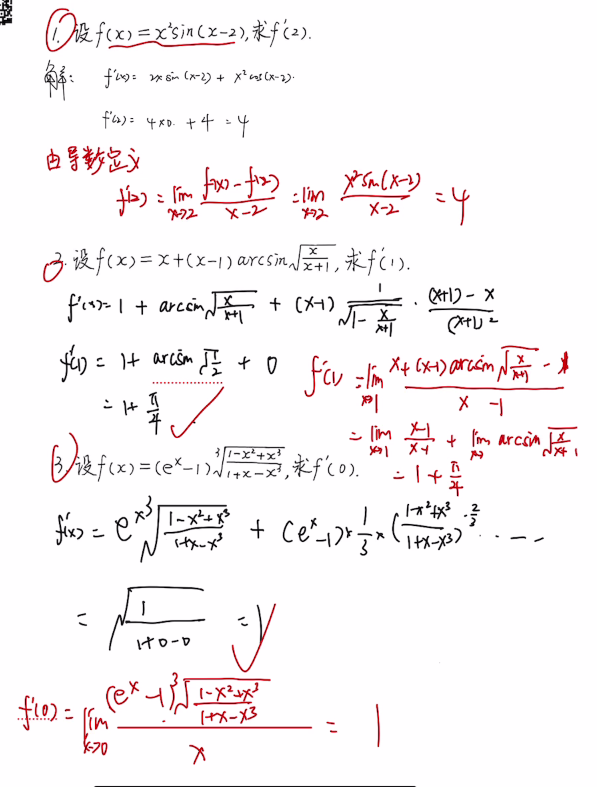 1. 设f(x)=x²sin(x-2),求f'(2).
解: f'(x)= 2x sin(x-2) + x²cos(x-2).
f'(2)= 4×0. + 4 = 4
由导数定义
f'(2) = lim x→2 (f(x)-f(2))/(x-2) = lim x→2 (x²sin(x-2))/(x-2) = 4
2. 设f(x)=x+(x-1)arcsin√(x/(x+1)),求f'(1).
f'(x)= 1 + arcsin√(x/(x+1)) + (x-1) 1/√(1-x/(x+1)) · ((x+1)-x)/(x+1)²
f'(1) = 1+ arcsin√(1/2) + 0
= 1+ π/4
f'(1) = lim x→1 (x+(x-1)arcsin√(x/(x+1)) - 1)/(x-1)
= lim x→1 (x-1)/(x-1) + lim x→ arcsin√(x/(x+1))
= 1 + π/4
3. 设f(x)=(eˣ-1)∛((1-x²+x³)/(1+x-x³)),求f'(0).
f'(x) = eˣ ∛((1-x²+x³)/(1+x-x³)) + (eˣ-1)×1/3×((1-x²+x³)/(1+x-x³))^(-2/3) ·····
= √(1/(1+0-0)) = 1
f'(0) = lim x→0 ((eˣ-1)∛((1-x²+x³)/(1+x-x³)))/x = 1